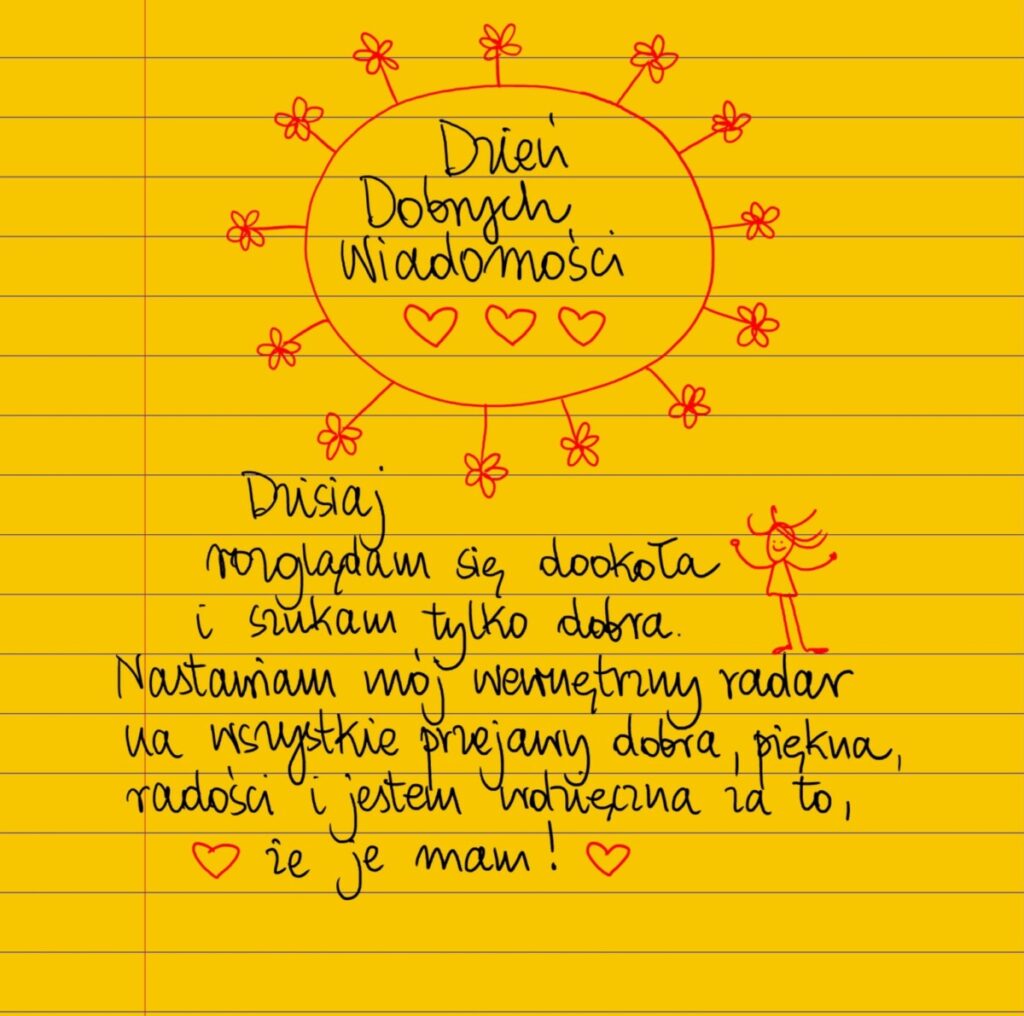 Dzień
Dobrych
Wiadomości
Dzisiaj
rozglądam się dookoła
i szukam tylko dobra.
Nastawiam mój wewnętrzny radar
na wszystkie przejawy dobra, piękna,
radości i jestem wdzięczna za to,
że je mam!